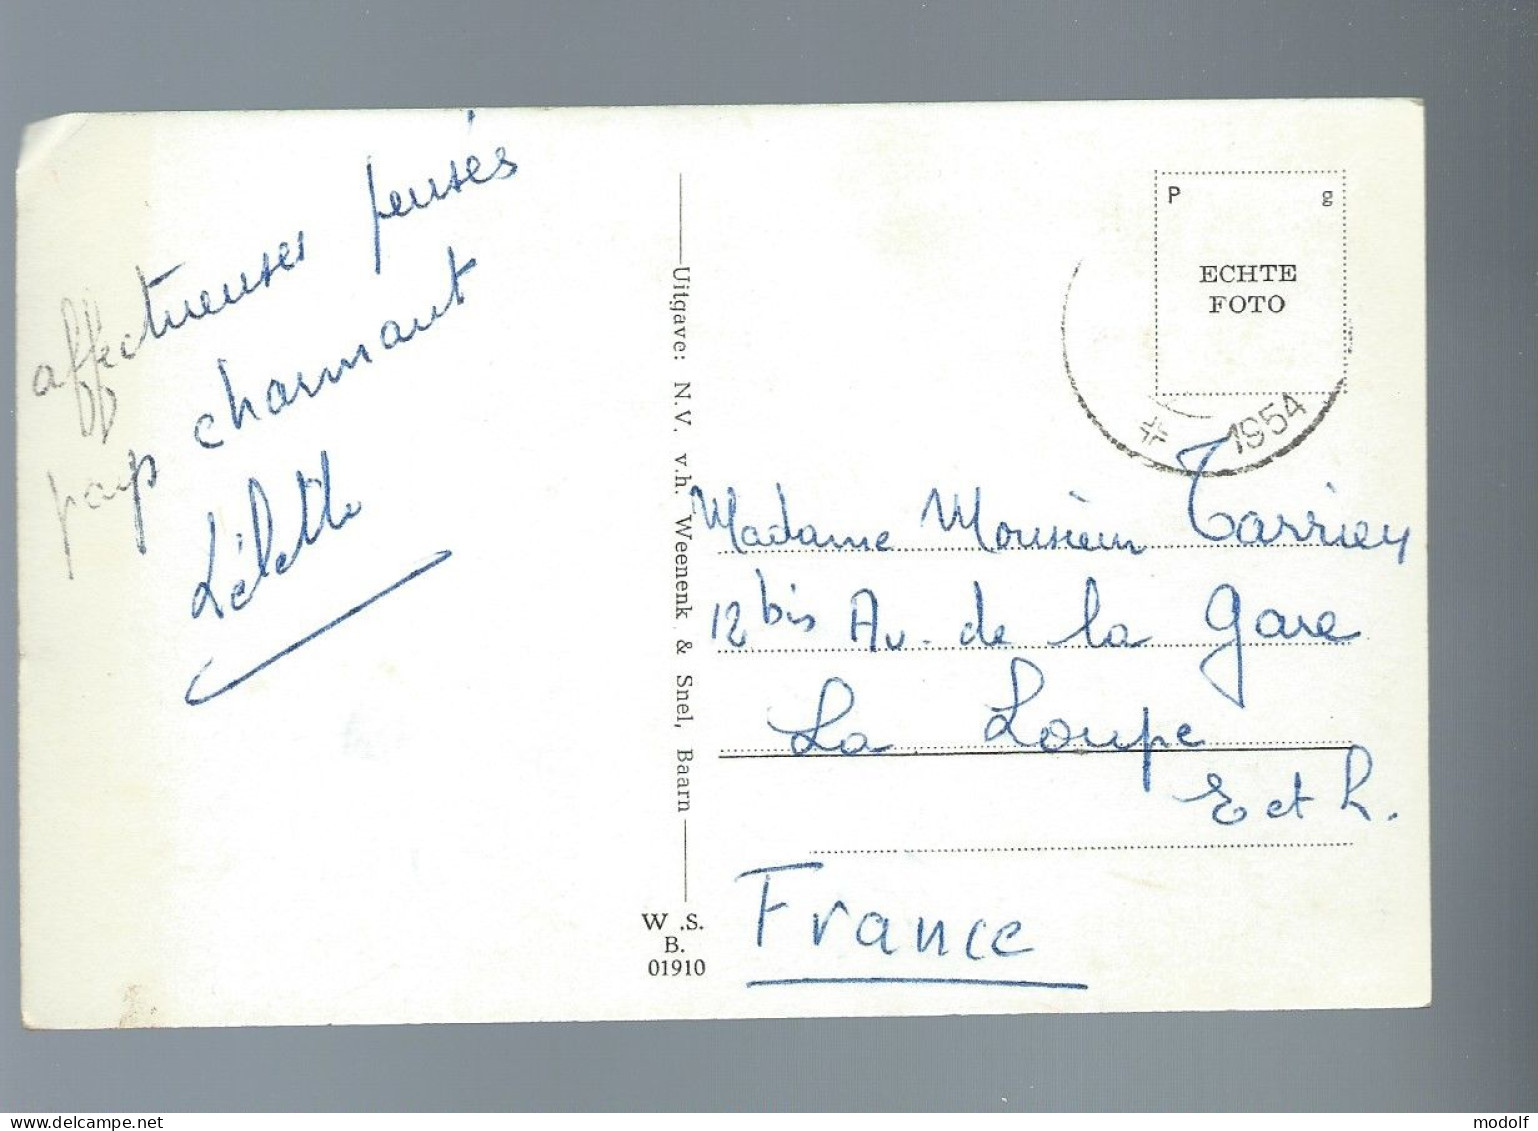 affectueuses pensés
pays charmant
Lélette
Uitgave: N.V. v.h. Weenenk & Snel, Baarn
W .S.
B.
01910
P g
ECHTE
FOTO
1954
Madame Monsieur Tarriey
12 bis Av. de la gare
La Loupe
E et L.
France
modolf